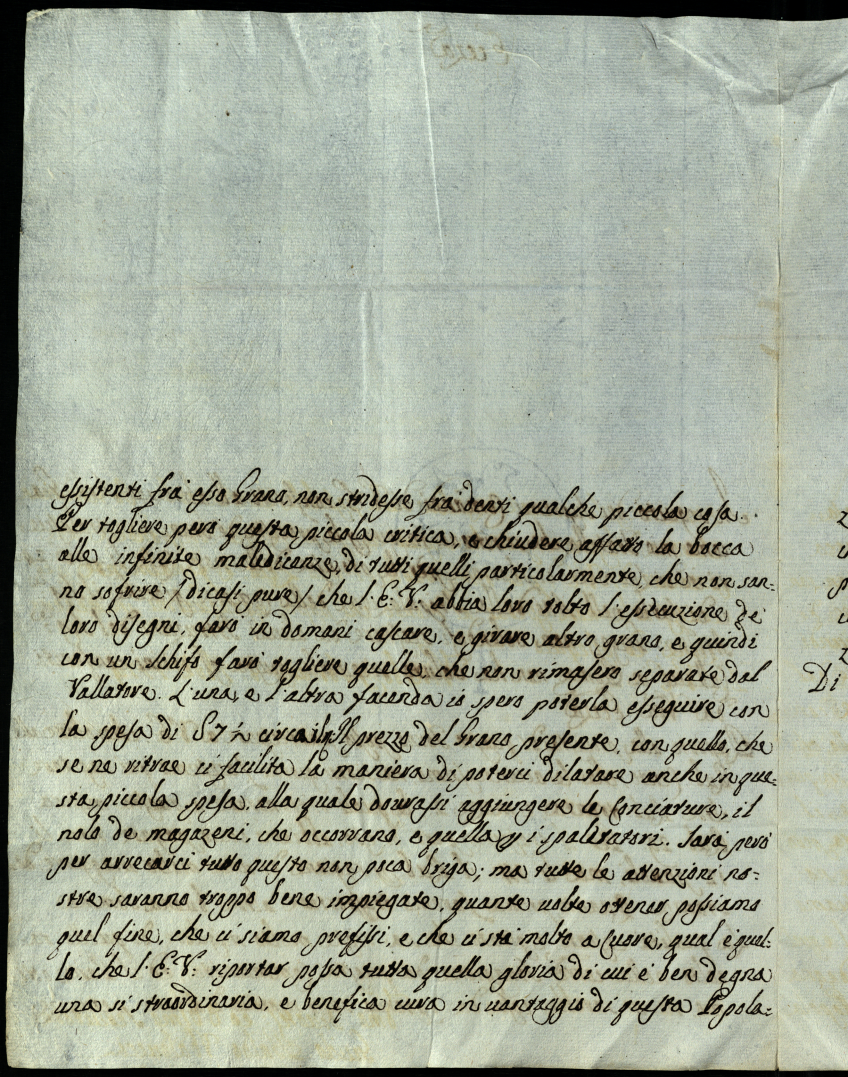 essistenti frà esso Grano, non stridesse frà denti qualche piccola cosa.
Per togliere però questa piccola critica, e chiudere affatto la bocca
alle infinite maledicenze, di tutti quelli particolarmente, che non san=
no sofrire /dicasi pure/ che l'E: V: abbia loro tolto l'essecuzione de
loro disegni, farò in domani cascare, e girare altro grano, e quindi
con un schifo farò togliere quelle, che non rimasero separate dal
Vallatore. L'una, e l'altra facenda io spero poterla esseguire con
la spesa di circa il prezzo del Grano presente, con quello, che
se ne ritrae ci facilita la maniera di poterci dilatare anche in que=
sta piccola spesa, alla quale dourassi aggiungere le Conciature, il
nolo de magazeni, che occorrano, e quella i spaliratori. Sarà però
per arrecarci tutto questo non poca briga; ma tutte le attenzioni no=
stre saranno troppo bene impiegate, quante uolte ottener possiamo
quel fine, che ci siamo prefissi, e che ci stà molto a Cuore, qual è quel=
lo, che l'E: V: riportar possa tutta quella gloria di cui è ben degna
una sì straordinaria, e benefica cura in uantaggio di questa Popola=
Di